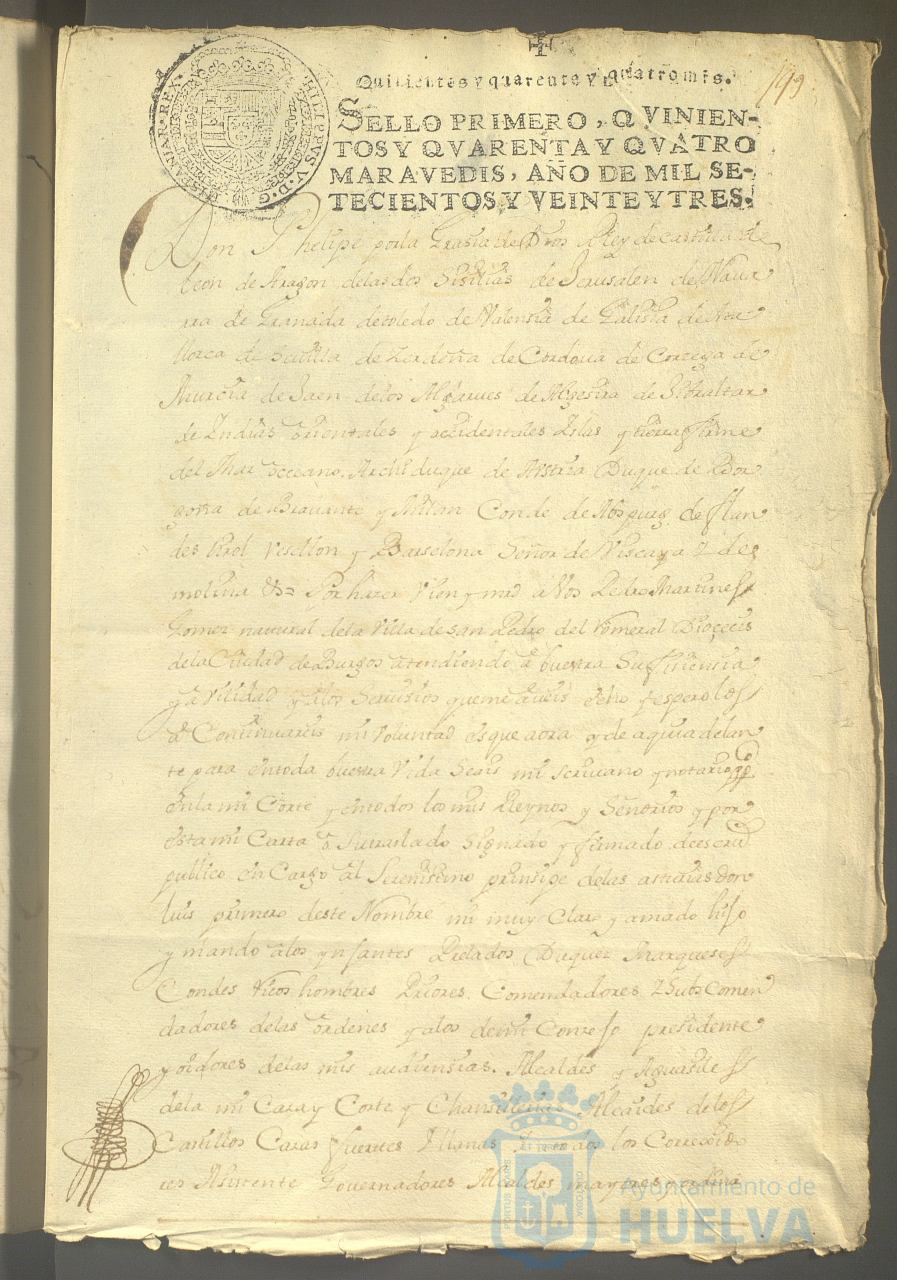 Quinientos y quarenta y quatro mrs.
193
HISPANIAR. REX. PHILIPPUS V. D. G.
SELLO PRIMERO, QVINIEN-
TOS Y QVARENTA Y QVATRO
MARAVEDIS, AÑO DE MIL SE-
TECIENTOS, Y VEINTE Y TRES.
Don Phelipe por la Grasia de Dios Rey de Castilla de
leon de Aragon delas dos Sisilias de Jerusalen de Nava
rra de Granada de toledo de Valensia de Galisia de Ma
llorca de Sevilla de Zerdeña de Cordova de Corcega de
Murcia de Jaen delos Algarues de Algesira de Gibraltar
de Indias orientales y ocsidentales Islas y tierra firme
del Mar occeano Archiduque de Austria Duque de Bor
goña de Bravante y Milan Conde de Abspurg de flan
des tirol Rosellon y Barselona Señor de Viscaya y de
molina &a Por hazer Vien y mrd a Vos Pedro Martines
Gomez natural dela Villa de San Pedro del Diocecis
dela Ciudad de Burgos atendiendo a buestra Sufisiensia
y avilidad y alos Servisios que me aveis echo y espero los
Continuareis mi Voluntad es que aora y de aqui adelan
te para en toda buestra Vida Seais mi Scrivano y notario ppco
en la mi Corte y en todos los mis Reynos y Señorios y por
esta mi Carta o Su traslado Signado y firmado de escrno
publico en Cargo al Serenissimo prinsipe delas asturias don
luis primero deste Nombre mi muy Claro y amado hijo
y mando alos ynfantes Prelados Duques Marqueses
Condes Ricos hombres Priores Comendadores y Subs Comen
dadores delas ordenes y alos de mi Consejo presidente
y oidores delas mis audiensias. Alcaldes y Aguasiles
dela mi Casa y Corte y Chansillerias Alcaides delos
Castillos Casas fuertes y llanas y todos los Corregido
res Asistente Governadores Alcaldes mayores y ordina
Ayuntamiento de
HUELVA